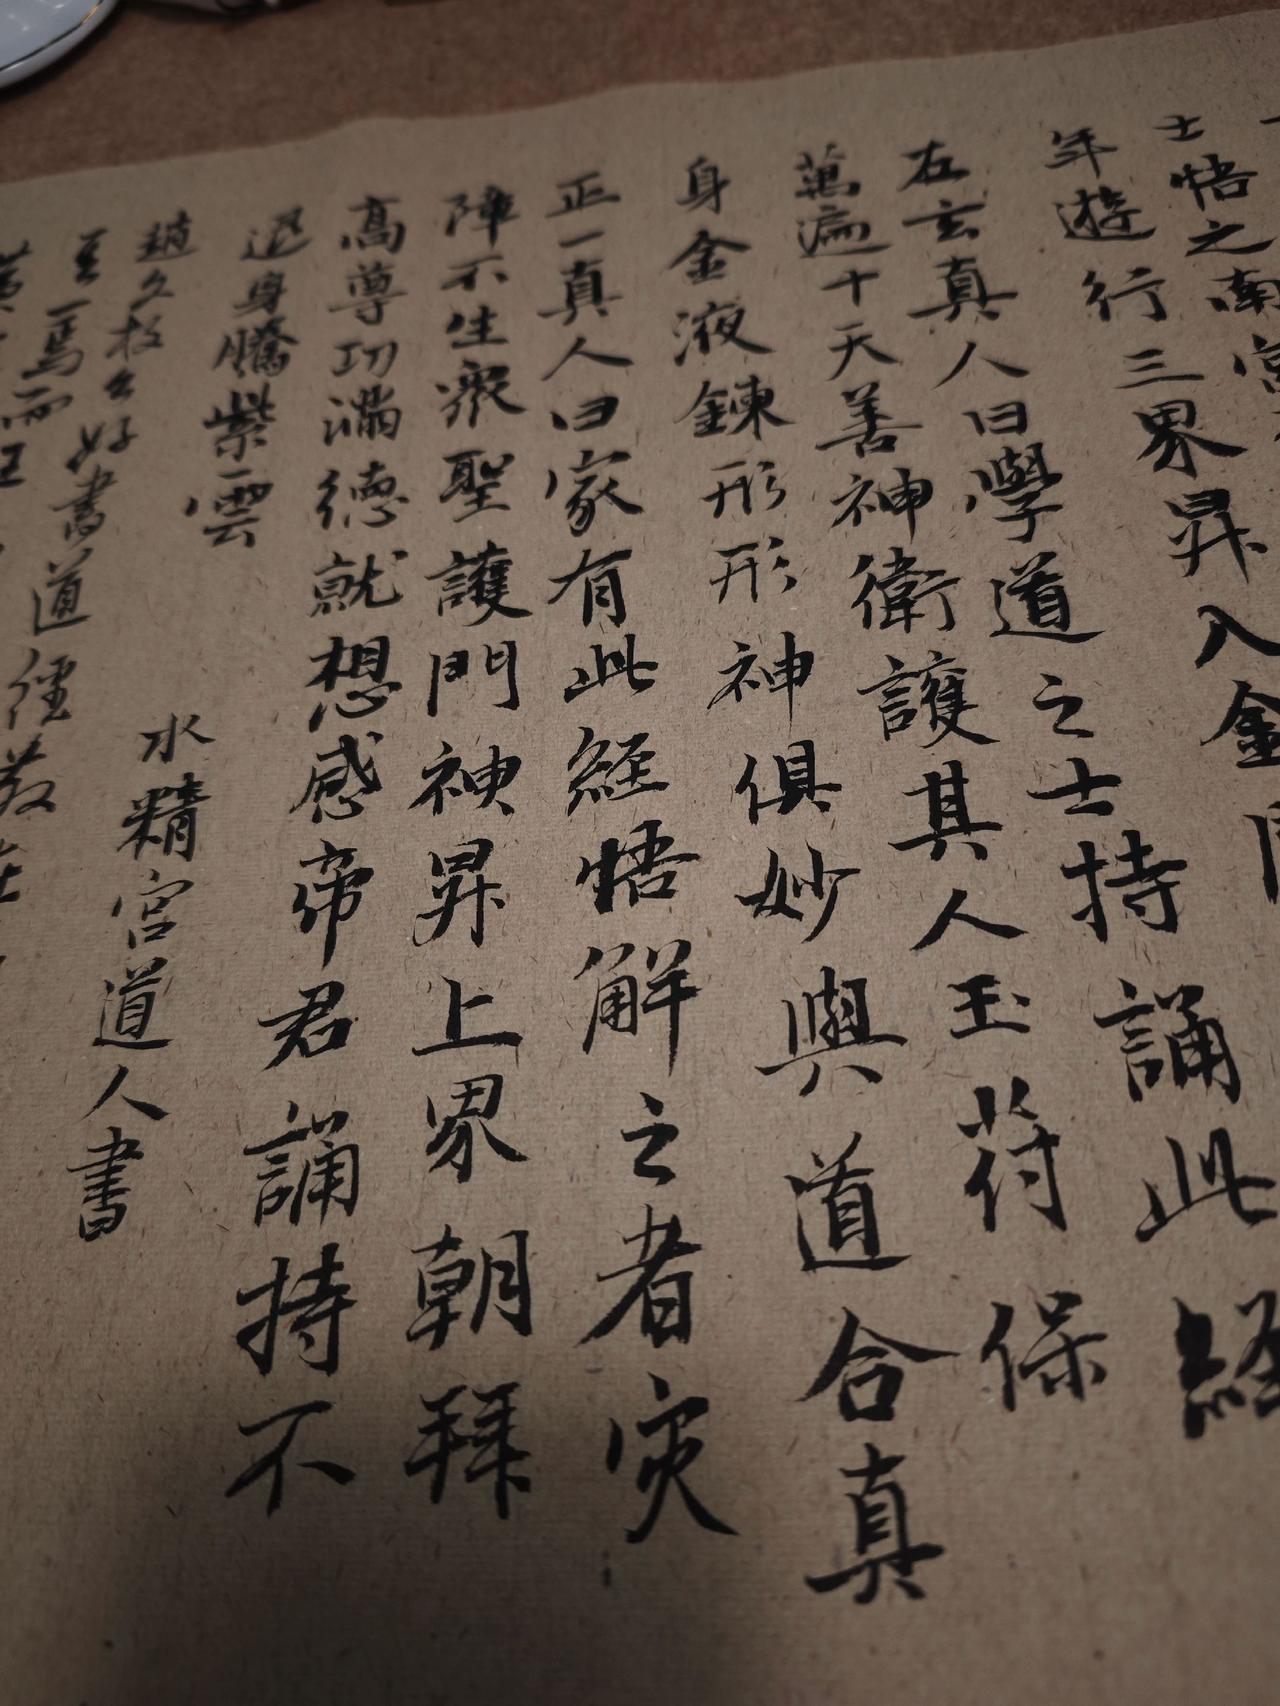 士悟之南宮
年遊行三界昇入金
左玄真人曰學道之士持誦此經
萬遍十天善神衛護其人玉符保
身金液鍊形形神俱妙與道合真
正一真人曰家有此經悟解之者災
障不生衆聖護門神昇上界朝拜
高尊功滿德就想感帝君誦持不
退身騰紫雲
水精宮道人書
好書道經